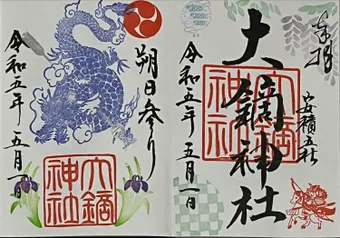 奉拝
安積五社
大鏑神社
大鏑神社
令和五年 五月一日
朔日参り
大鏑神社
令和五年 五月一日